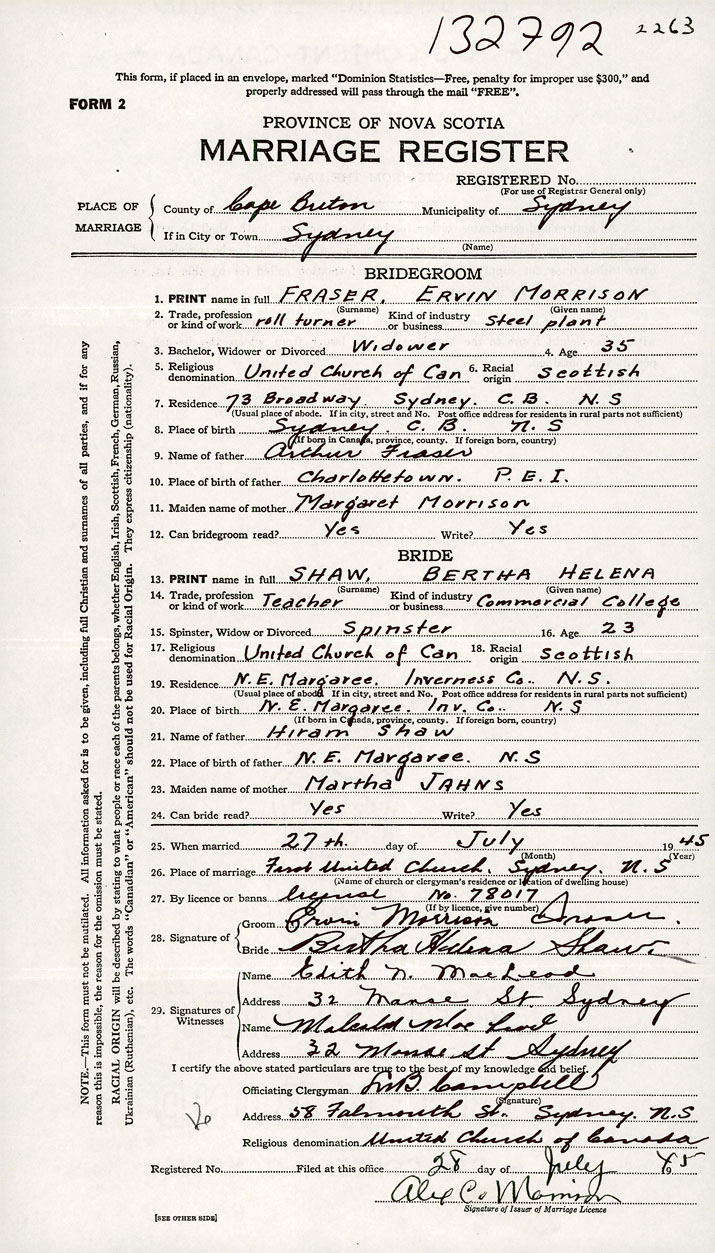 132792 2263
This form, if placed in an envelope, marked "Dominion Statistics—Free, penalty for improper use $300," and
properly addressed will pass through the mail "FREE".
FORM 2
PROVINCE OF NOVA SCOTIA
MARRIAGE REGISTER
REGISTERED No.
(For use of Registrar General only)
PLACE OF MARRIAGE
County of Cape Breton Municipality of Sydney
If in City or Town Sydney
(Name)
BRIDEGROOM
1. PRINT name in full FRASER, ERVIN MORRISON
(Surname) (Given name)
2. Trade, profession or kind of work roll turner Kind of industry or business Steel plant
3. Bachelor, Widower or Divorced Widower 4. Age 35
5. Religious denomination United Church of Can 6. Racial origin Scottish
7. Residence 73 Broadway Sydney. C. B. N. S
(Usual place of abode. If in city, street and No. Post office address for residents in rural parts not sufficient)
8. Place of birth Sydney. C. B. N. S
(If born in Canada, province, county. If foreign born, country)
9. Name of father Arthur Fraser
10. Place of birth of father Charlottetown. P. E. I.
11. Maiden name of mother Margaret Morrison
12. Can bridegroom read? Yes Write? Yes
BRIDE
13. PRINT name in full SHAW, BERTHA HELENA
(Surname) (Given name)
14. Trade, profession or kind of work Teacher Kind of industry or business Commercial College
15. Spinster, Widow or Divorced Spinster 16. Age 23
17. Religious denomination United Church of Can 18. Racial origin Scottish
19. Residence N. E. Margaree. Inverness Co. N. S.
(Usual place of abode. If in city, street and No. Post office address for residents in rural parts not sufficient)
20. Place of birth N. E. Margaree. Inv. Co. N. S
(If born in Canada, province, county. If foreign born, country)
21. Name of father Hiram Shaw
22. Place of birth of father N. E. Margaree. N. S
23. Maiden name of mother Martha JAHNS
24. Can bride read? Yes Write? Yes
25. When married 27th. day of July 1945
(Month) (Year)
26. Place of marriage First United Church. Sydney. N. S
(Name of church or clergyman's residence or location of dwelling house)
27. By licence or banns No. 78017
(If by licence, give number)
28. Signature of
Groom Ervin Morrison Fraser.
Bride Bertha Helena Shaw.
29. Signatures of Witnesses
Name Edith N. MacLeod
Address 32 Manse St. Sydney
Name
Address 32 Manse St Sydney
I certify the above stated particulars are true to the best of my knowledge and belief.
Officiating Clergyman Campbell
(Signature)
Address 58 Falmouth St. Sydney. N. S
Religious denomination United Church of Canada
Registered No. Filed at this office 28 day of July 1945
Alex C. Morrison
Signature of Issuer of Marriage Licence
[SEE OTHER SIDE]
NOTE.—This form must not be mutilated. All information asked for is to be given, including full Christian and surnames of all parties, and if for any
reason this is impossible, the reason for the omission must be stated.
RACIAL ORIGIN will be described by stating to what people or race each of the parents belongs, whether English, Irish, Scottish, French, German, Russian,
Ukrainian (Ruthenian), etc. The words "Canadian" or "American" should not be used for Racial Origin. They express citizenship (nationality).